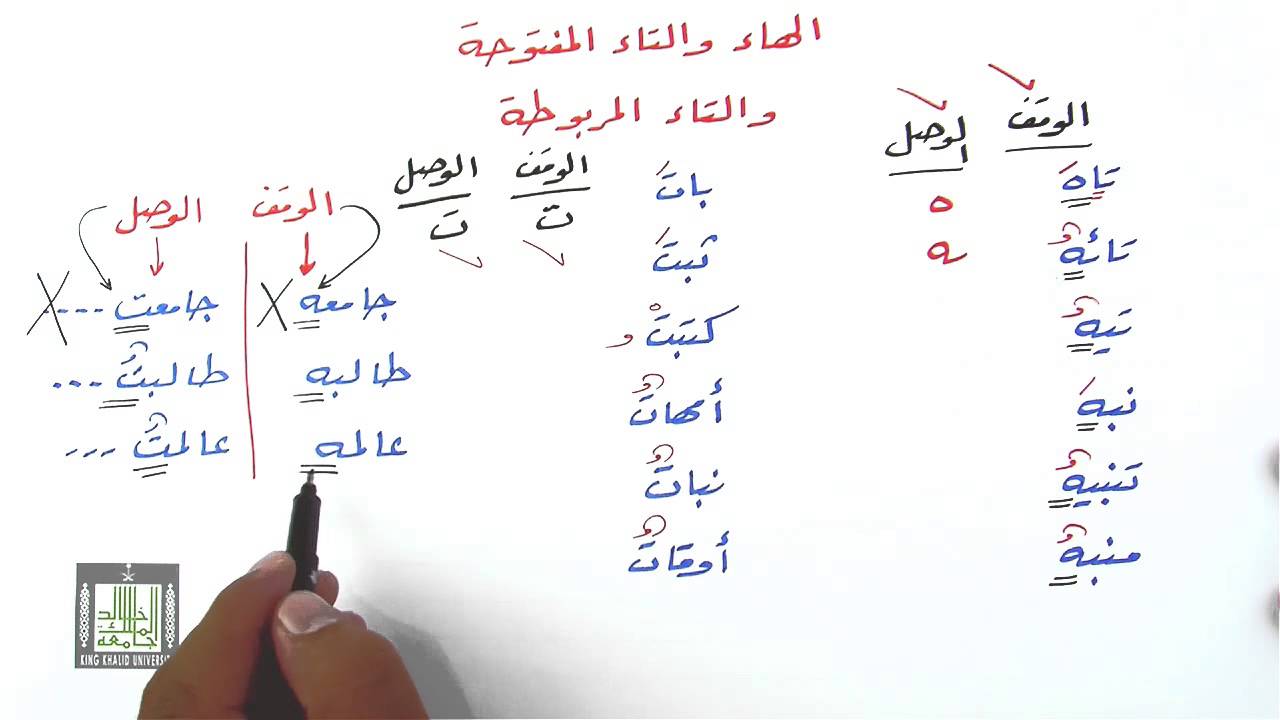 الهاء والتاء المفتوحة
والتاء المربوطة
الوقف الوصل
تاهَ ه
تائهٌ ـه
تيهٌ
نبهَ
تنبيهٌ
منبهٌ
الوقف الوصل
باتَ تْ تَ
ثبتَ
كتبتْ و
أمهاتٌ
نباتٌ
أوقاتٌ
الوقف الوصل
جامعه جامعت ....
طالبه طالبتٌ ...
عالمه عالمتٌ ...
جامعة الملك خالد
KING KHALID UNIVERSITY